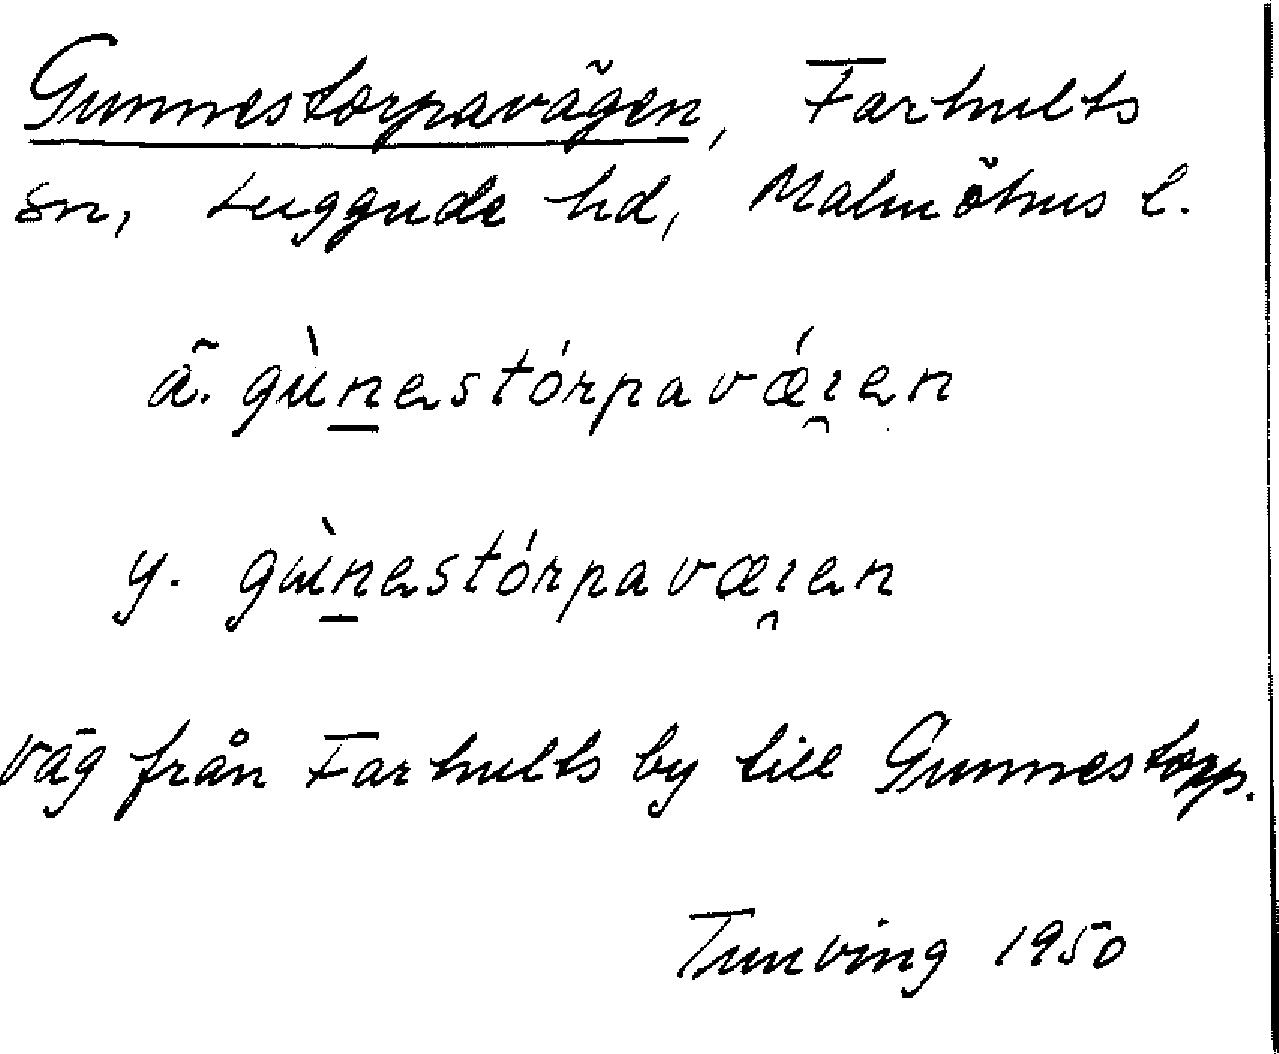 Gunnestorpavägen, Farhults
sn, Luggude hd, Malmöhus l.
ä. gùn̲estórpavǽı̯en
y. gùn̲estórpavæı̯en
Väg från Farhults by till Gunnestorp.
Tunving 1950